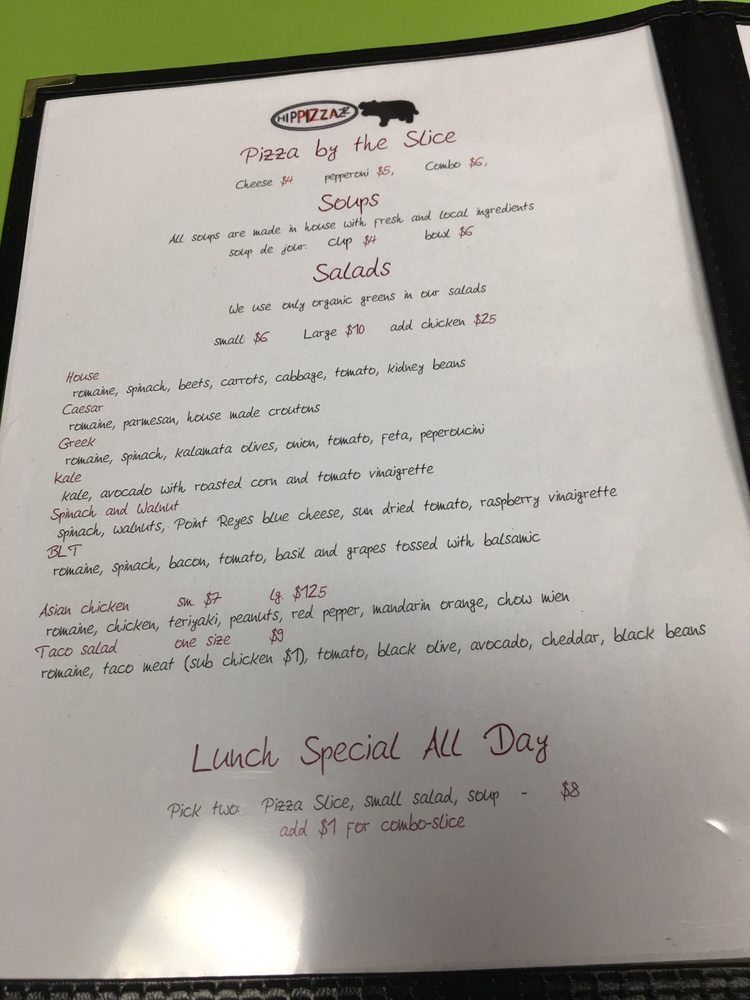 HIPPIZZAZZ
Pizza by the Slice
Cheese $4 pepperoni $5, Combo $6,
Soups
All soups are made in house with fresh and local ingredients
soup de jour: cup $4 bowl $6
Salads
We use only organic greens in our salads
small: $6 Large $10 add chicken $25
House
romaine, spinach, beets, carrots, cabbage, tomato, kidney beans
Caesar
romaine, parmesan, house made croutons
Greek
romaine, spinach, kalamata olives, onion, tomato, feta, peperoucini
Kale
kale, avocado with roasted corn and tomato vinaigrette
Spinach and Walnut
spinach, walnuts, Point Reyes blue cheese, sun dried tomato, raspberry vinaigrette
BLT
romaine, spinach, bacon, tomato, basil and grapes tossed with balsamic
Asian chicken sm. $7 lg. $125
romaine, chicken, teriyaki, peanuts, red pepper, mandarin orange, chow mien
Taco salad one size $9
romaine, taco meat (sub chicken $1), tomato, black olive, avocado, cheddar, black beans
Lunch Special All Day
Pick two: Pizza Slice, small salad, soup - $8
add $1 for combo-slice